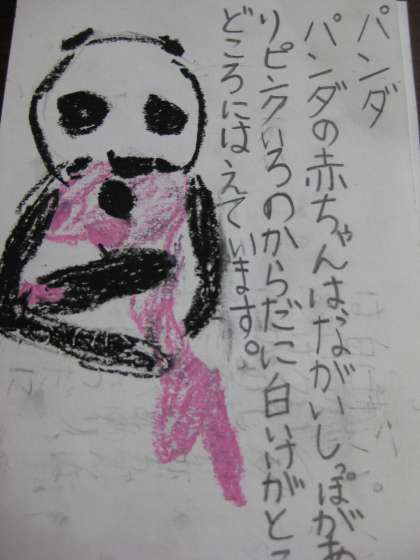 パンダ
パンダの赤ちゃんはながいしっぽがあ
りピンクいろのからだに白いけがとこ
どころにはえています。